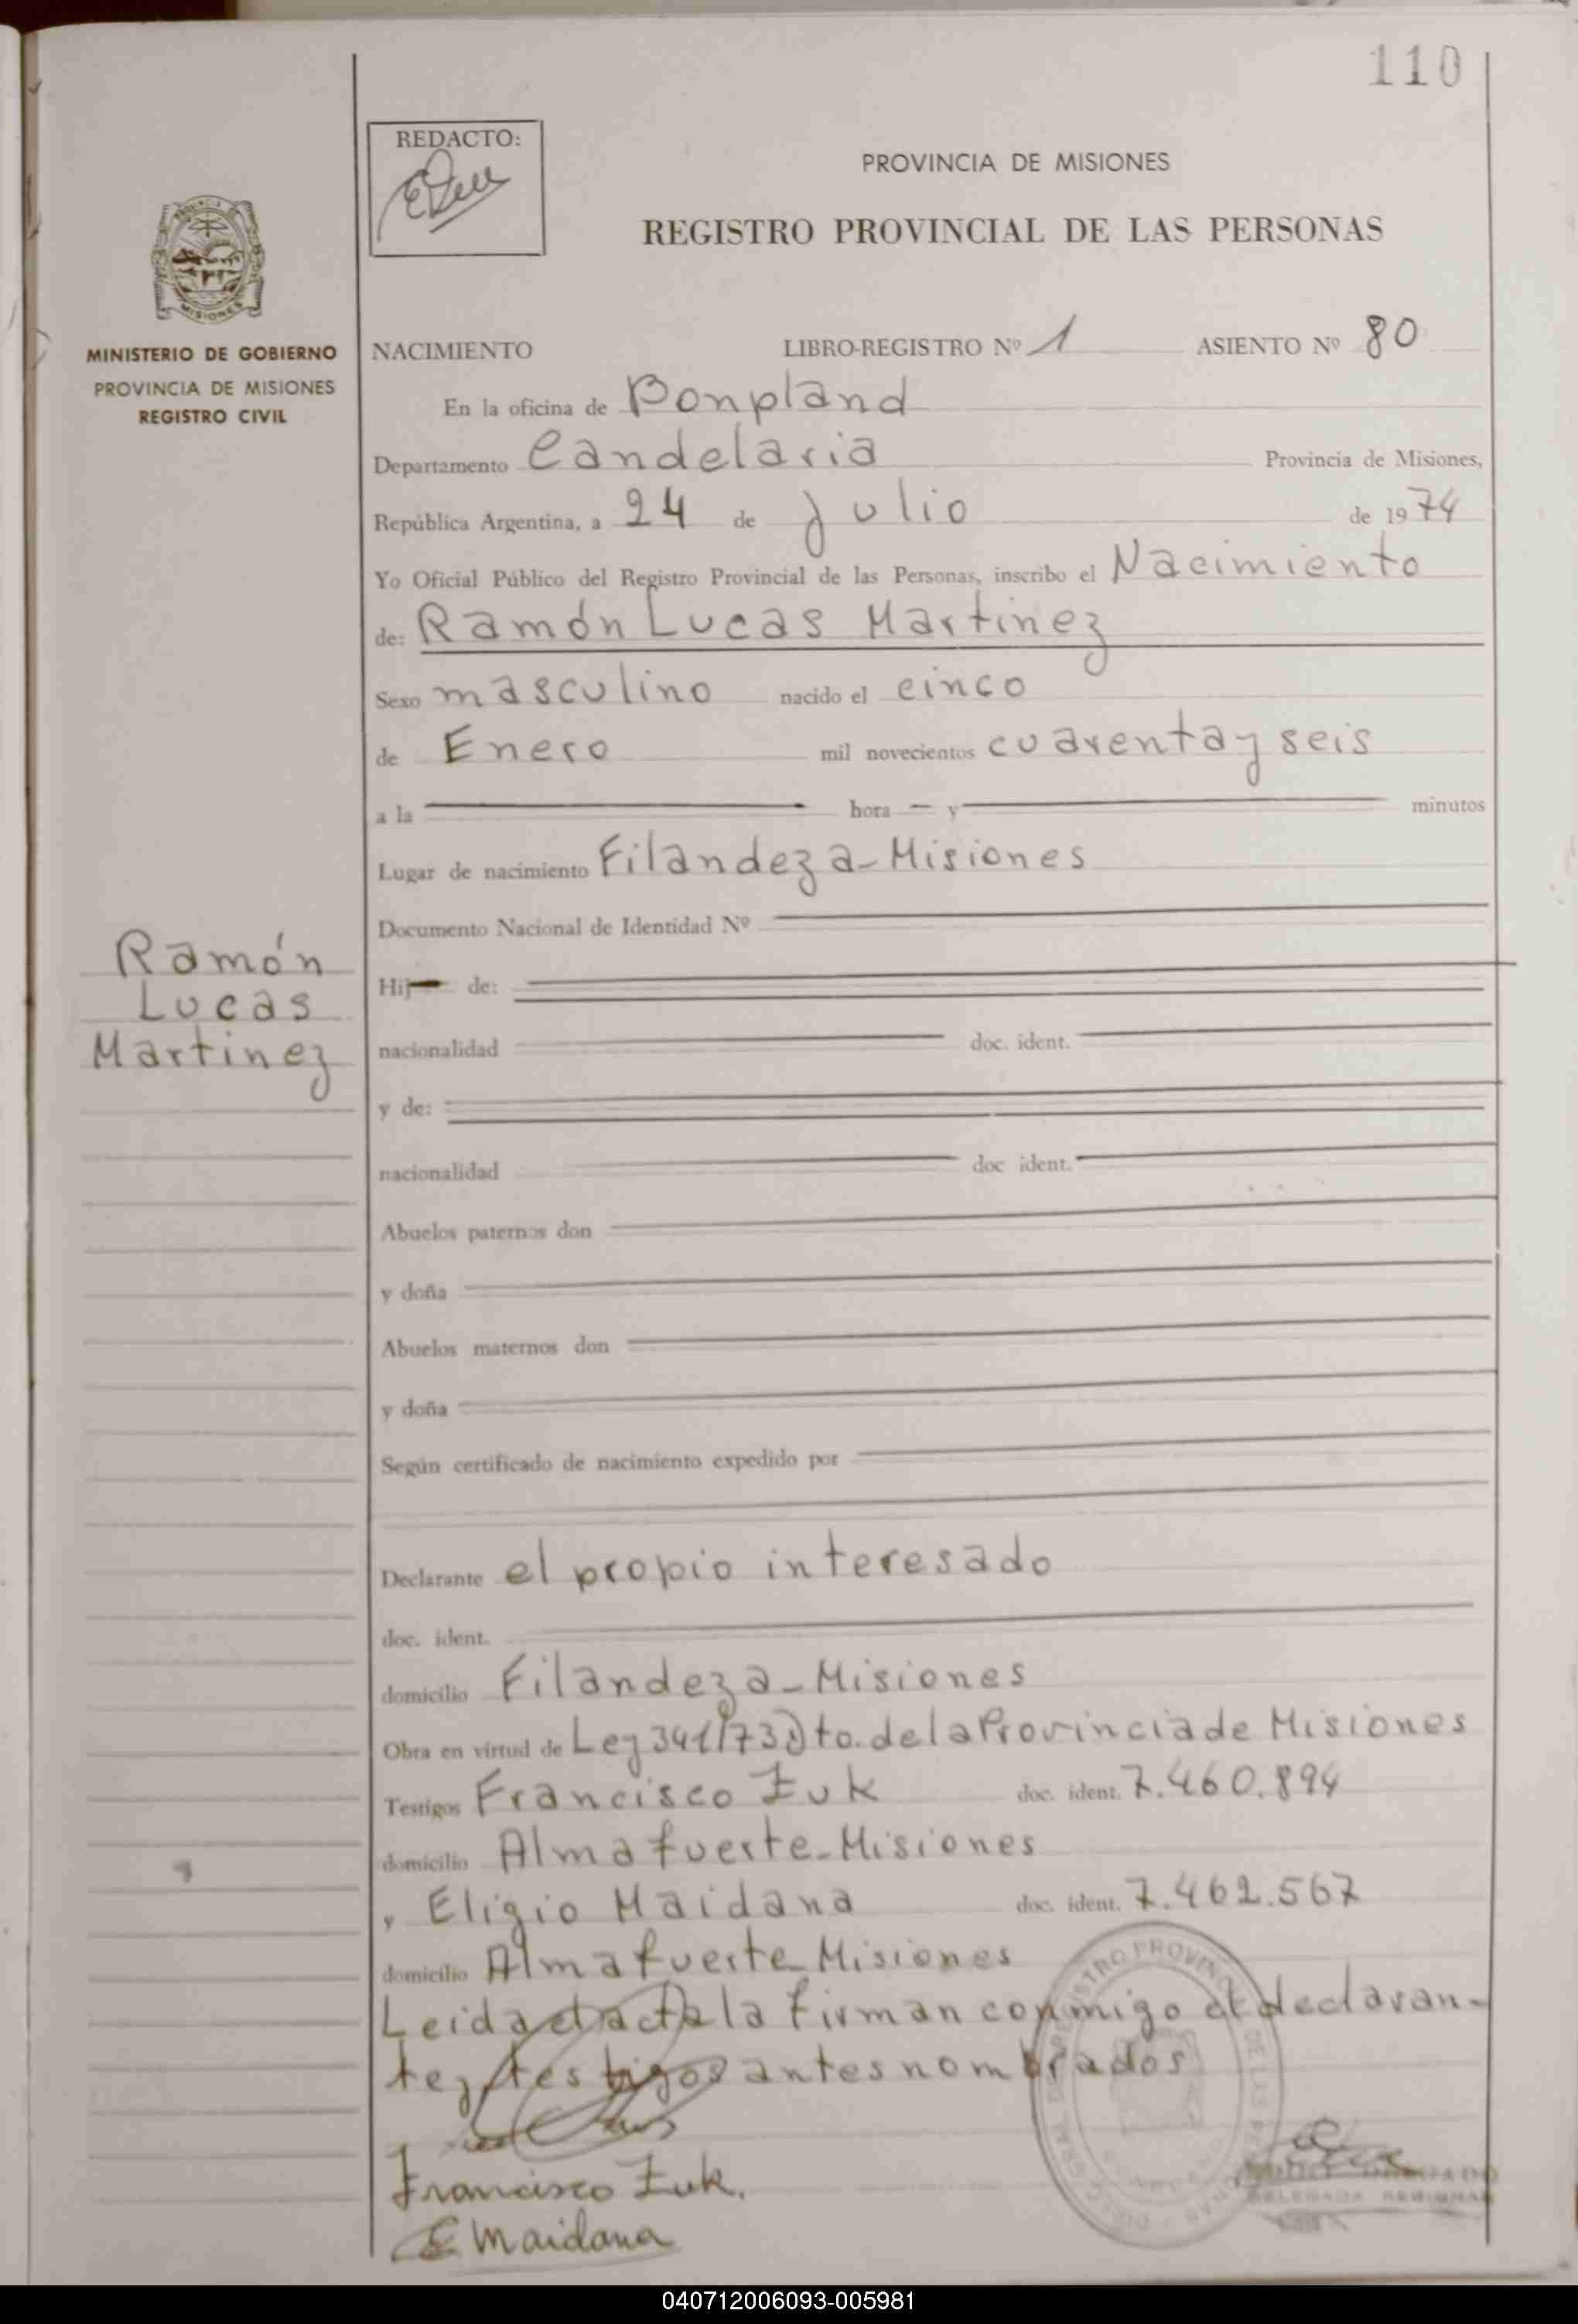 110
REDACTO:
PROVINCIA DE MISIONES
REGISTRO PROVINCIAL DE LAS PERSONAS
MISIONES
MINISTERIO DE GOBIERNO
PROVINCIA DE MISIONES
REGISTRO CIVIL
NACIMIENTO LIBRO-REGISTRO Nº 1 ASIENTO Nº 80
En la oficina de Bonpland
Departamento Candelaria Provincia de Misiones,
República Argentina, a 24 de Julio de 1974
Yo Oficial Público del Registro Provincial de las Personas, inscribo el Nacimiento
de: Ramón Lucas Martinez
Sexo masculino nacido el cinco
de Enero mil novecientos cuarenta y seis
a la hora y minutos
Lugar de nacimiento Filandeza-Misiones
Documento Nacional de Identidad Nº
Ramón
Lucas
Martinez
Hij de:
nacionalidad doc. ident.
y de:
nacionalidad doc ident.
Abuelos paternos don
y doña
Abuelos maternos don
y doña
Según certificado de nacimiento expedido por
Declarante el propio interesado
doc. ident.
domicilio Filandeza-Misiones
Obra en virtud de Ley 341/73 Dto. de la Provincia de Misiones
Testigos Francisco Zuk doc. ident. 7.460.894
domicilio Almafuerte-Misiones
y Eligio Maidana doc. ident. 7.462.567
domicilio Almafuerte-Misiones
Leida el acta la firman conmigo el declaran-
te y testigos antes nombrados
Francisco Zuk.
E Maidana
040712006093-005981